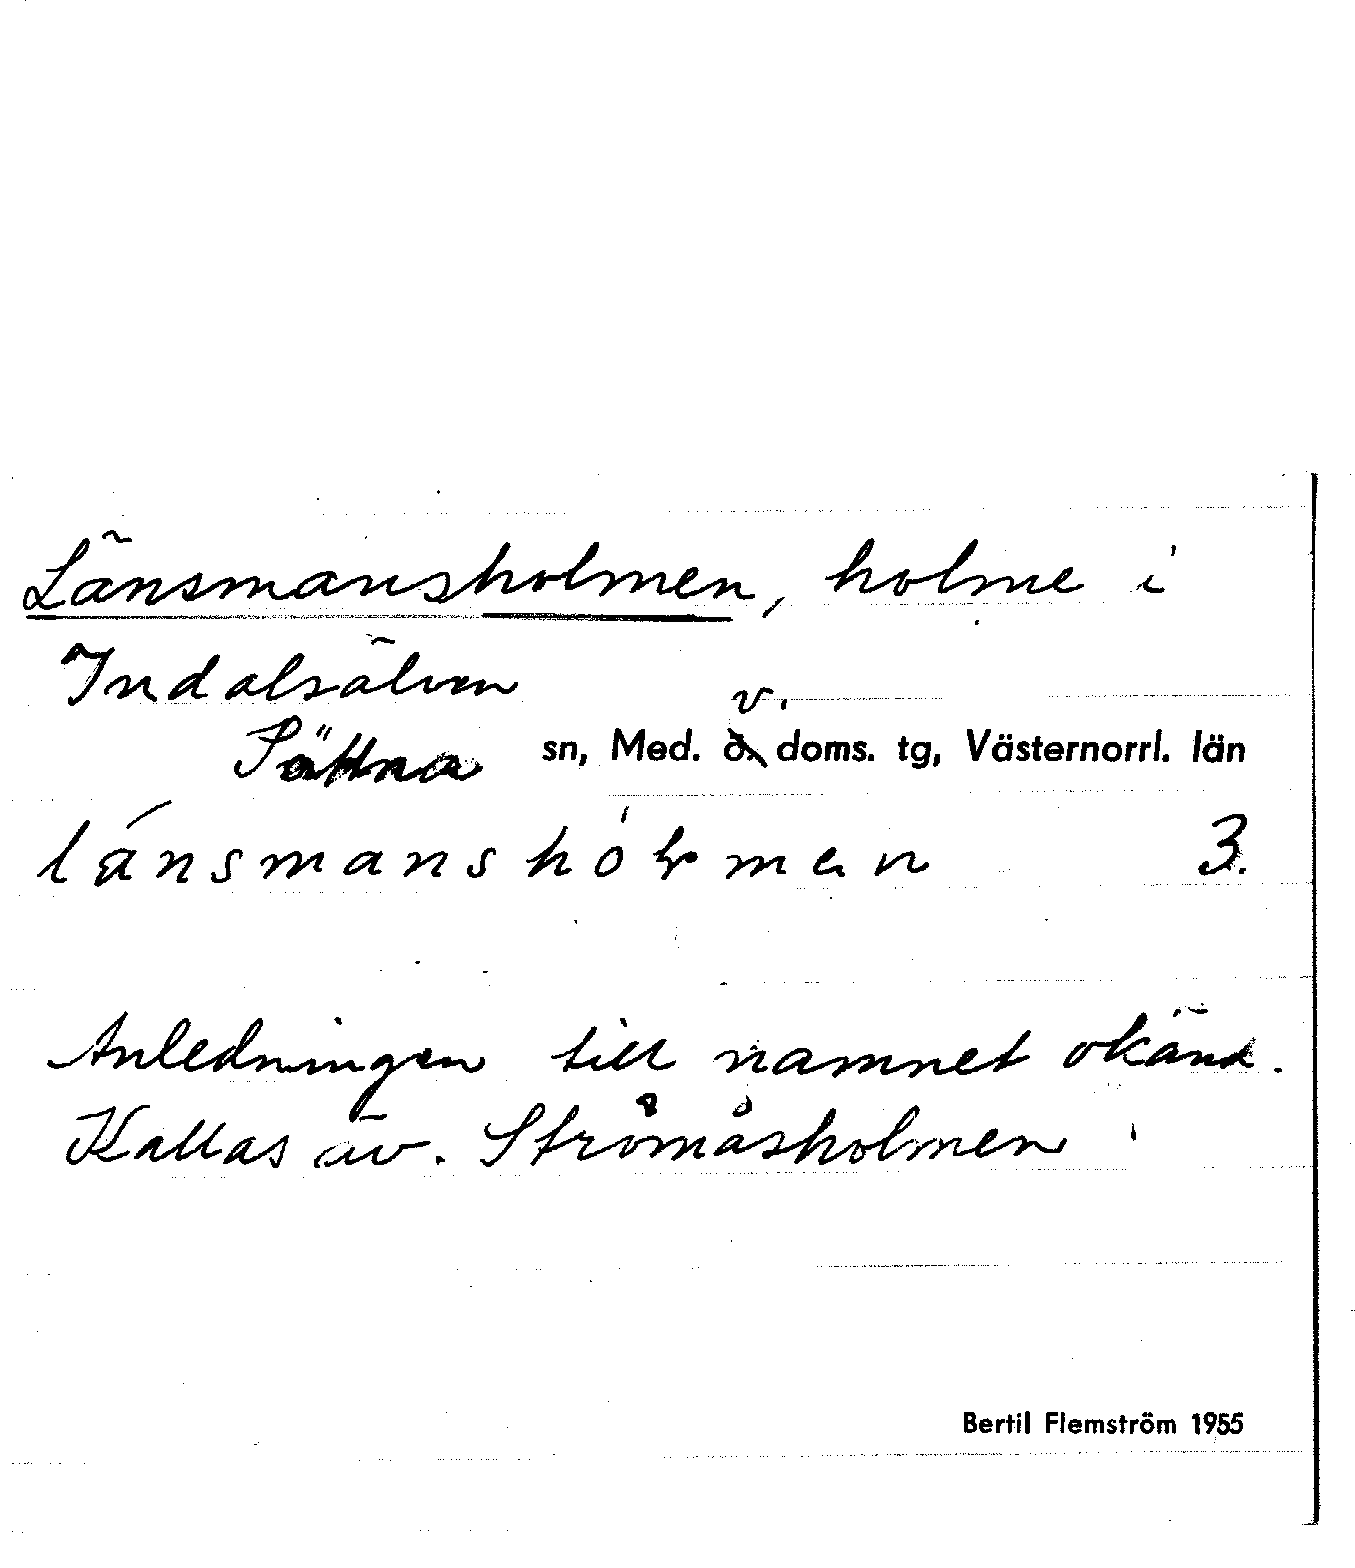 Länsmansholmen, holme i
Indalsälven
v.
Sättna sn, Med. ö. doms. tg, Västernorrl. län
länsmanshólmen 3.
Anledningen till namnet okänd.
Kallas äv. Strömåsholmen
Bertil Flemström 1955